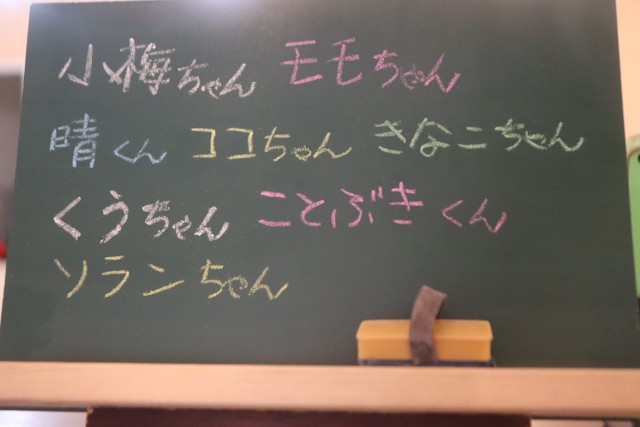 小梅ちゃん モモちゃん
晴くん ココちゃん きなこちゃん
くうちゃん ことぶきくん
ソランちゃん